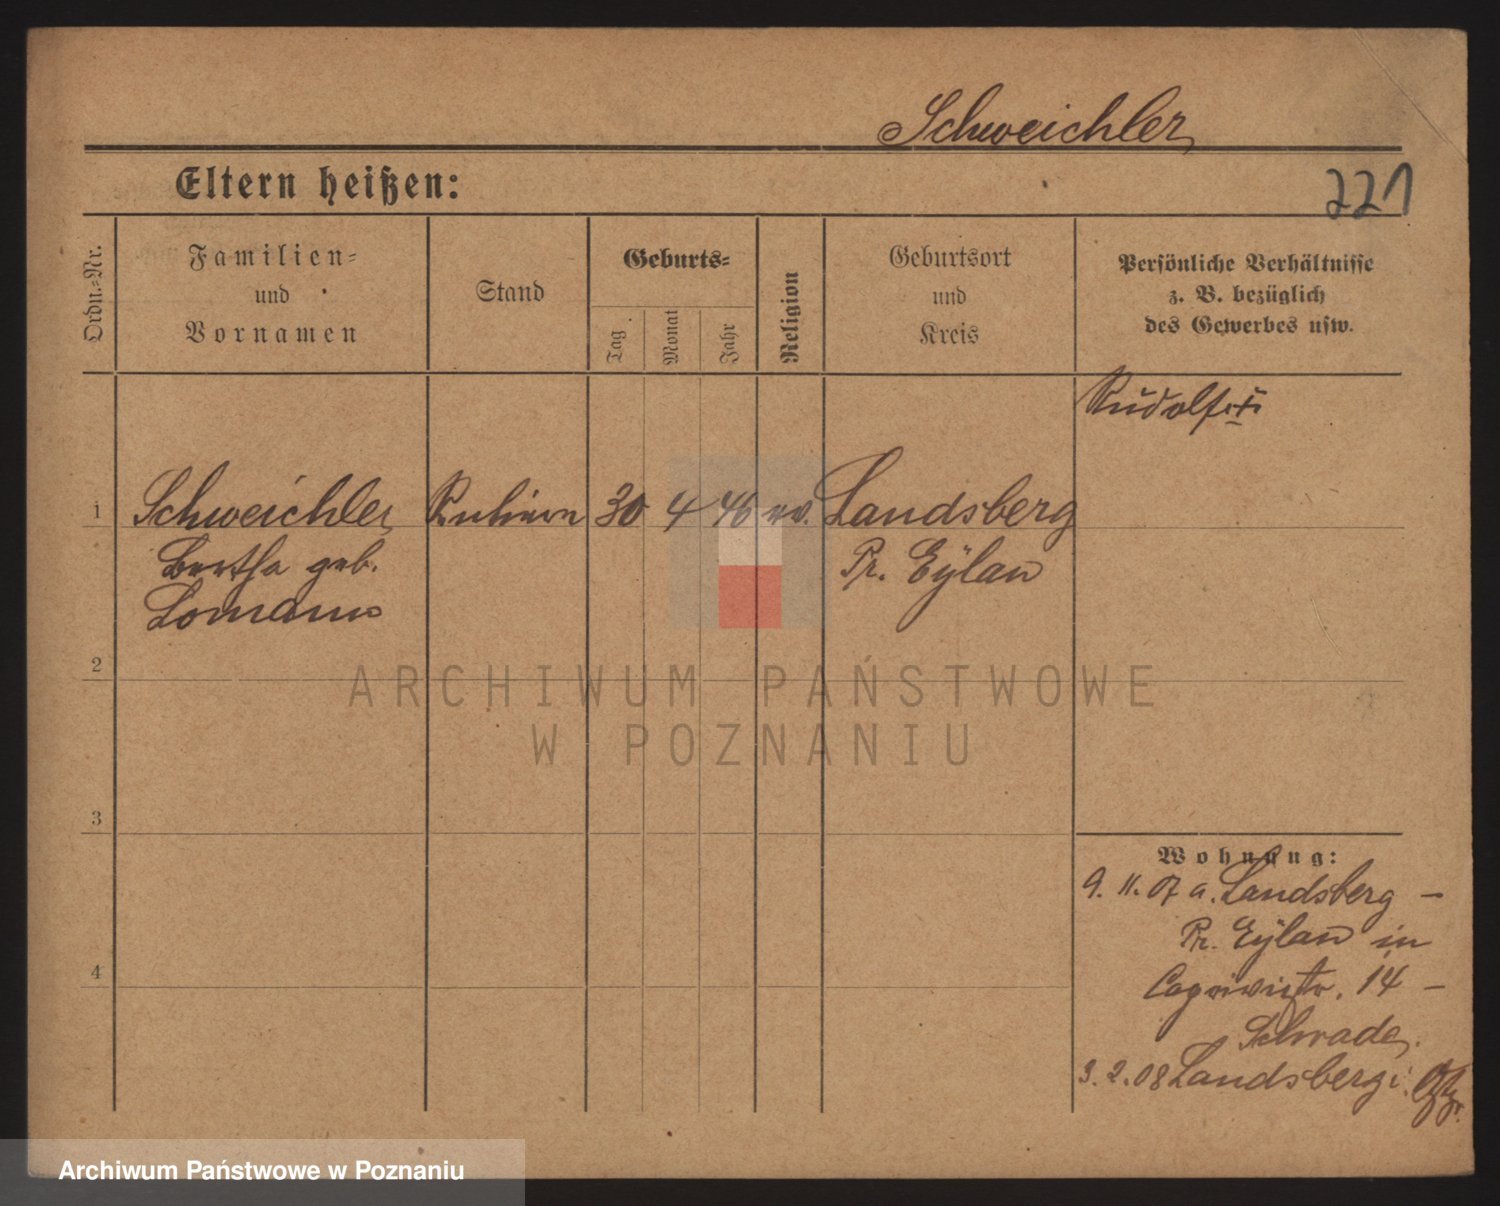 Schweichler
Eltern heißen:
221
Ordn.-Nr.
Familien-
und
Vornamen
Stand
Geburts-
Tag
Monat
Jahr
Religion
Geburtsort
und
Kreis
Persönliche Verhältnisse
z. B. bezüglich
des Gewerbes usw.
Rudolf †
1 Schweichler 30 4 46 ev. Landsberg
Bertha geb. Pr. Eylau
2
3
4
Wohnung:
9. 11. 07 a. Landsberg –
Pr. Eylau in
Caprivistr. 14 –
Schrader.
3. 2. 08 Landsberg i.
ARCHIWUM PAŃSTWOWE
W POZNANIU
Archiwum Państwowe w Poznaniu